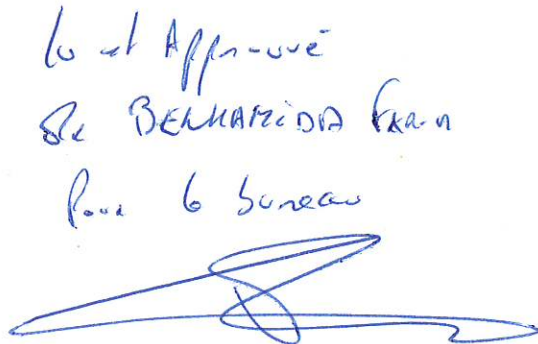 lu et Approuvé
BENHAMIDA
Pour le bureau